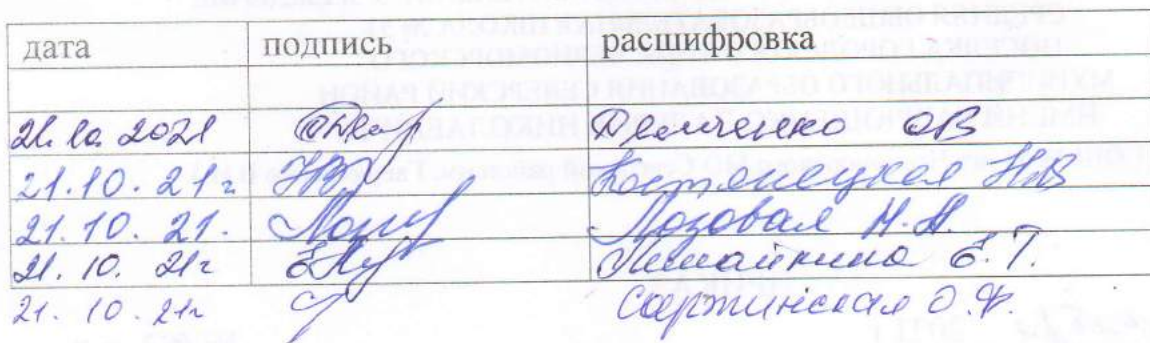 дата подпись расшифровка
21.10.2021 Демченко ОВ
21.10.21г Костянецкая НВ
21.10.21. Лозовая Н.Н.
21.10.21г Е.Т.
21.10.21г Саржинская О.Ф.